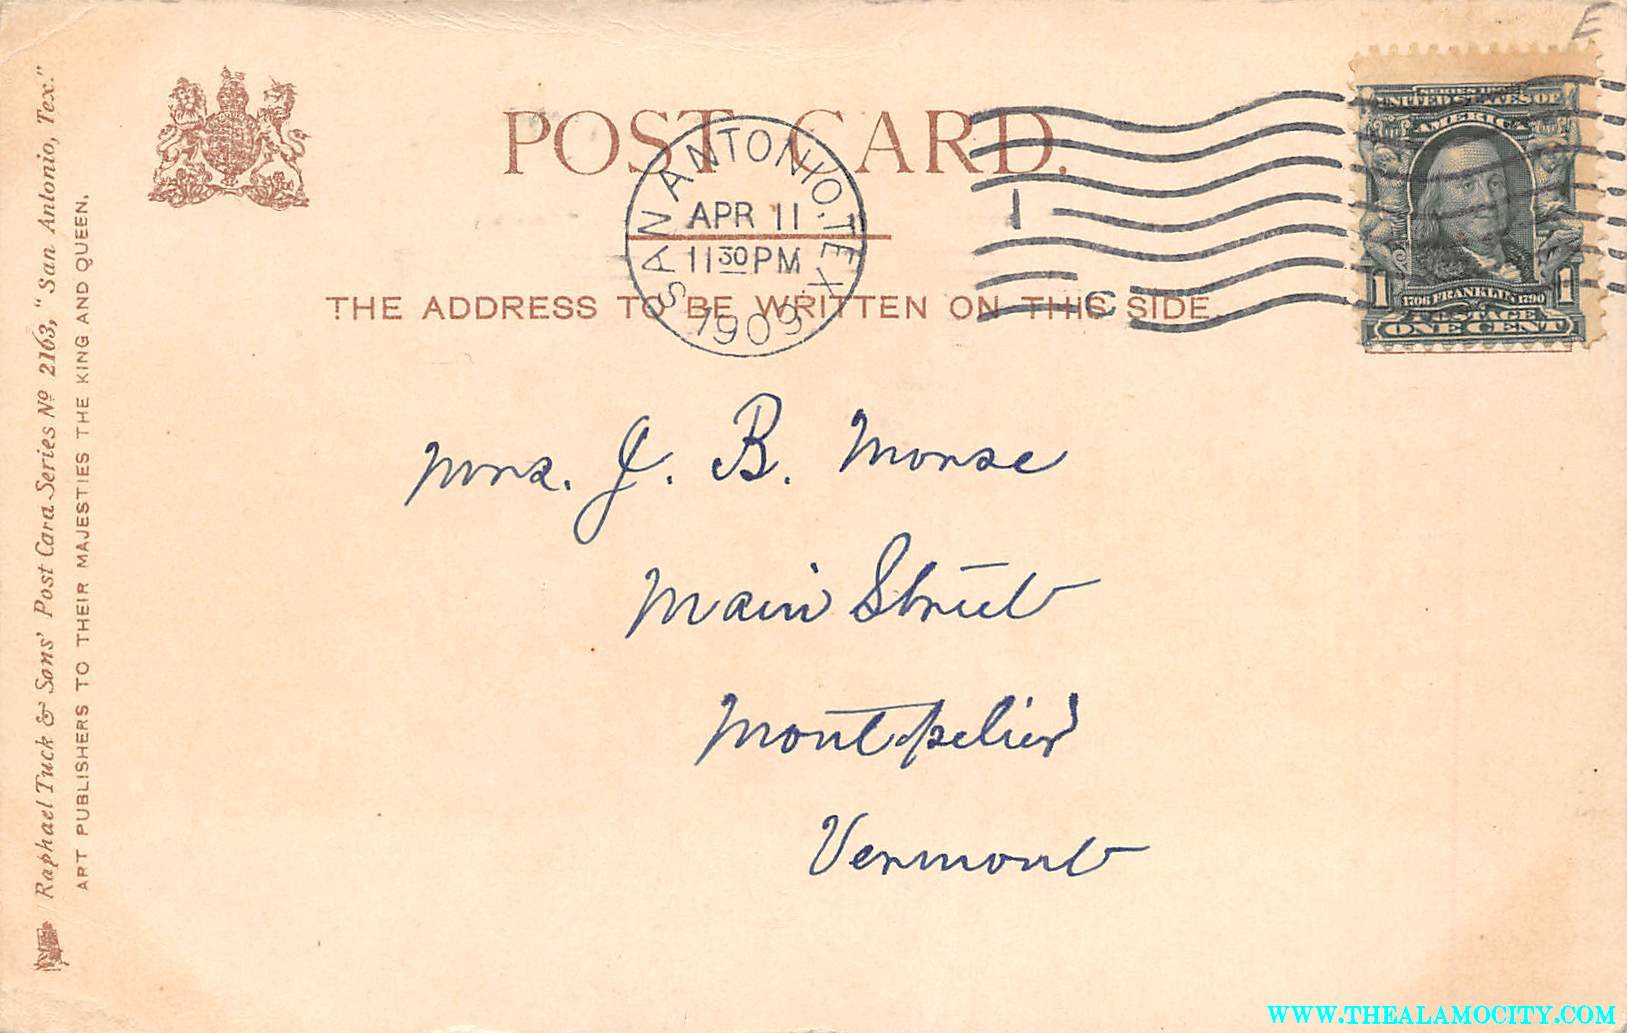 POST CARD.
SAN ANTONIO. TEX.
APR 11
11 30 PM
1909
1
C
THE ADDRESS TO BE WRITTEN ON THIS SIDE.
SERIES 1902
UNITED STATES OF
AMERICA
1706 FRANKLIN 1790
1 1
POSTAGE
ONE CENT
E
Mrs. J. B. Morse
Main Street
Montpelier
Vermont
Raphael Tuck & Sons' Post Card Series No 2163, "San Antonio, Tex."
ART PUBLISHERS TO THEIR MAJESTIES THE KING AND QUEEN.
WWW.THEALAMOCITY.COM